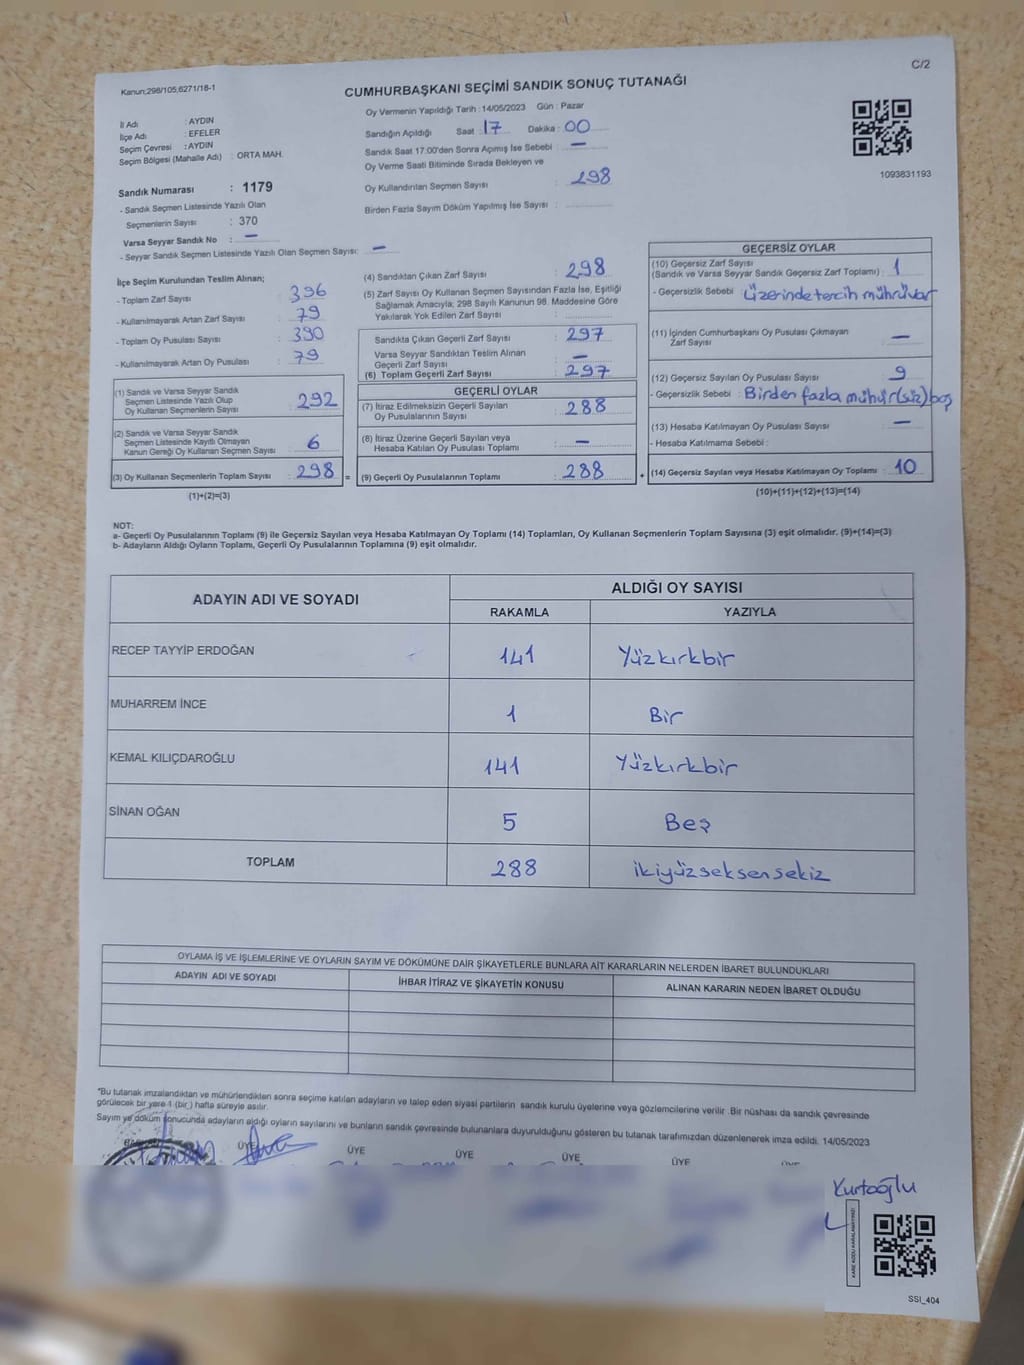 C/2
Kanun;298/105;6271/18-1
CUMHURBAŞKANI SEÇİMİ SANDIK SONUÇ TUTANAĞI
Oy Vermenin Yapıldığı Tarih : 14/05/2023 Gün : Pazar
İl Adı : AYDIN
İlçe Adı : EFELER
Seçim Çevresi : AYDIN
Seçim Bölgesi (Mahalle Adı) : ORTA MAH.
Sandığın Açıldığı Saat : 17 Dakika : 00
Sandık Saat 17:00'den Sonra Açımış İse Sebebi : —
Oy Verme Saati Bitiminde Sırada Bekleyen ve
Oy Kullandırılan Seçmen Sayısı : 298
Birden Fazla Sayım Döküm Yapılmış İse Sayısı :
1093831193
Sandık Numarası : 1179
- Sandık Seçmen Listesinde Yazılı Olan
Seçmenlerin Sayısı : 370
Varsa Seyyar Sandık No : —
- Seyyar Sandık Seçmen Listesinde Yazılı Olan Seçmen Sayısı: —
İlçe Seçim Kurulundan Teslim Alınan;
- Toplam Zarf Sayısı : 396
- Kullanılmayarak Artan Zarf Sayısı : 79
- Toplam Oy Pusulası Sayısı : 390
- Kullanılmayarak Artan Oy Pusulası : 79
(1) Sandık ve Varsa Seyyar Sandık
Seçmen Listesinde Yazılı Olup
Oy Kullanan Seçmenlerin Sayısı : 292
(2) Sandık ve Varsa Seyyar Sandık
Seçmen Listesinde Kayıtlı Olmayan
Kanun Gereği Oy Kullanan Seçmen Sayısı : 6
(3) Oy Kullanan Seçmenlerin Toplam Sayısı : 298 =
(1)+(2)=(3)
(4) Sandıktan Çıkan Zarf Sayısı : 298
(5) Zarf Sayısı Oy Kullanan Seçmen Sayısından Fazla İse, Eşitliği
Sağlamak Amacıyla; 298 Sayılı Kanunun 98. Maddesine Göre
Yakılarak Yok Edilen Zarf Sayısı :
Sandıkta Çıkan Geçerli Zarf Sayısı : 297
Varsa Seyyar Sandıktan Teslim Alınan
Geçerli Zarf Sayısı : —
(6) Toplam Geçerli Zarf Sayısı : 297
GEÇERLİ OYLAR
(7) İtiraz Edilmeksizin Geçerli Sayılan
Oy Pusulalarının Sayısı : 288
(8) İtiraz Üzerine Geçerli Sayılan veya
Hesaba Katılan Oy Pusulası Toplamı : —
(9) Geçerli Oy Pusulalarının Toplamı : 288 +
GEÇERSİZ OYLAR
(10) Geçersiz Zarf Sayısı
(Sandık ve Varsa Seyyar Sandık Geçersiz Zarf Toplamı) : 1
- Geçersizlik Sebebi : Üzerinde tercih mührü var
(11) İçinden Cumhurbaşkanı Oy Pusulası Çıkmayan
Zarf Sayısı : —
(12) Geçersiz Sayılan Oy Pusulası Sayısı : 9
- Geçersizlik Sebebi : Birden fazla mühür(süz)boş
(13) Hesaba Katılmayan Oy Pusulası Sayısı : —
- Hesaba Katılmama Sebebi :
(14) Geçersiz Sayılan veya Hesaba Katılmayan Oy Toplamı : 10
(10)+(11)+(12)+(13)=(14)
NOT:
a- Geçerli Oy Pusulalarının Toplamı (9) ile Geçersiz Sayılan veya Hesaba Katılmayan Oy Toplamı (14) Toplamları, Oy Kullanan Seçmenlerin Toplam Sayısına (3) eşit olmalıdır. (9)+(14)=(3)
b- Adayların Aldığı Oyların Toplamı, Geçerli Oy Pusulalarının Toplamına (9) eşit olmalıdır.
ADAYIN ADI VE SOYADI
ALDIĞI OY SAYISI
RAKAMLA YAZIYLA
RECEP TAYYİP ERDOĞAN 141 Yüzkırkbir
MUHARREM İNCE 1 Bir
KEMAL KILIÇDAROĞLU 141 Yüzkırkbir
SİNAN OĞAN 5 Beş
TOPLAM 288 ikiyüzseksensekiz
OYLAMA İŞ VE İŞLEMLERİNE VE OYLARIN SAYIM VE DÖKÜMÜNE DAİR ŞİKAYETLERLE BUNLARA AİT KARARLARIN NELERDEN İBARET BULUNDUKLARI
ADAYIN ADI VE SOYADI İHBAR İTİRAZ VE ŞİKAYETİN KONUSU ALINAN KARARIN NEDEN İBARET OLDUĞU
*Bu tutanak imzalandıktan ve mühürlendikten sonra seçime katılan adayların ve talep eden siyasi partilerin sandık kurulu üyelerine veya gözlemcilerine verilir .Bir nüshası da sandık çevresinde
görülecek bir yere 1 (bir ) hafta süreyle asılır.
Sayım ve döküm sonucunda adayların aldığı oyların sayılarını ve bunların sandık çevresinde bulunanlara duyurulduğunu gösteren bu tutanak tarafımızdan düzenlenerek imza edildi. 14/05/2023
ÜYE ÜYE ÜYE ÜYE ÜYE
Kurtoğlu
SSI_404